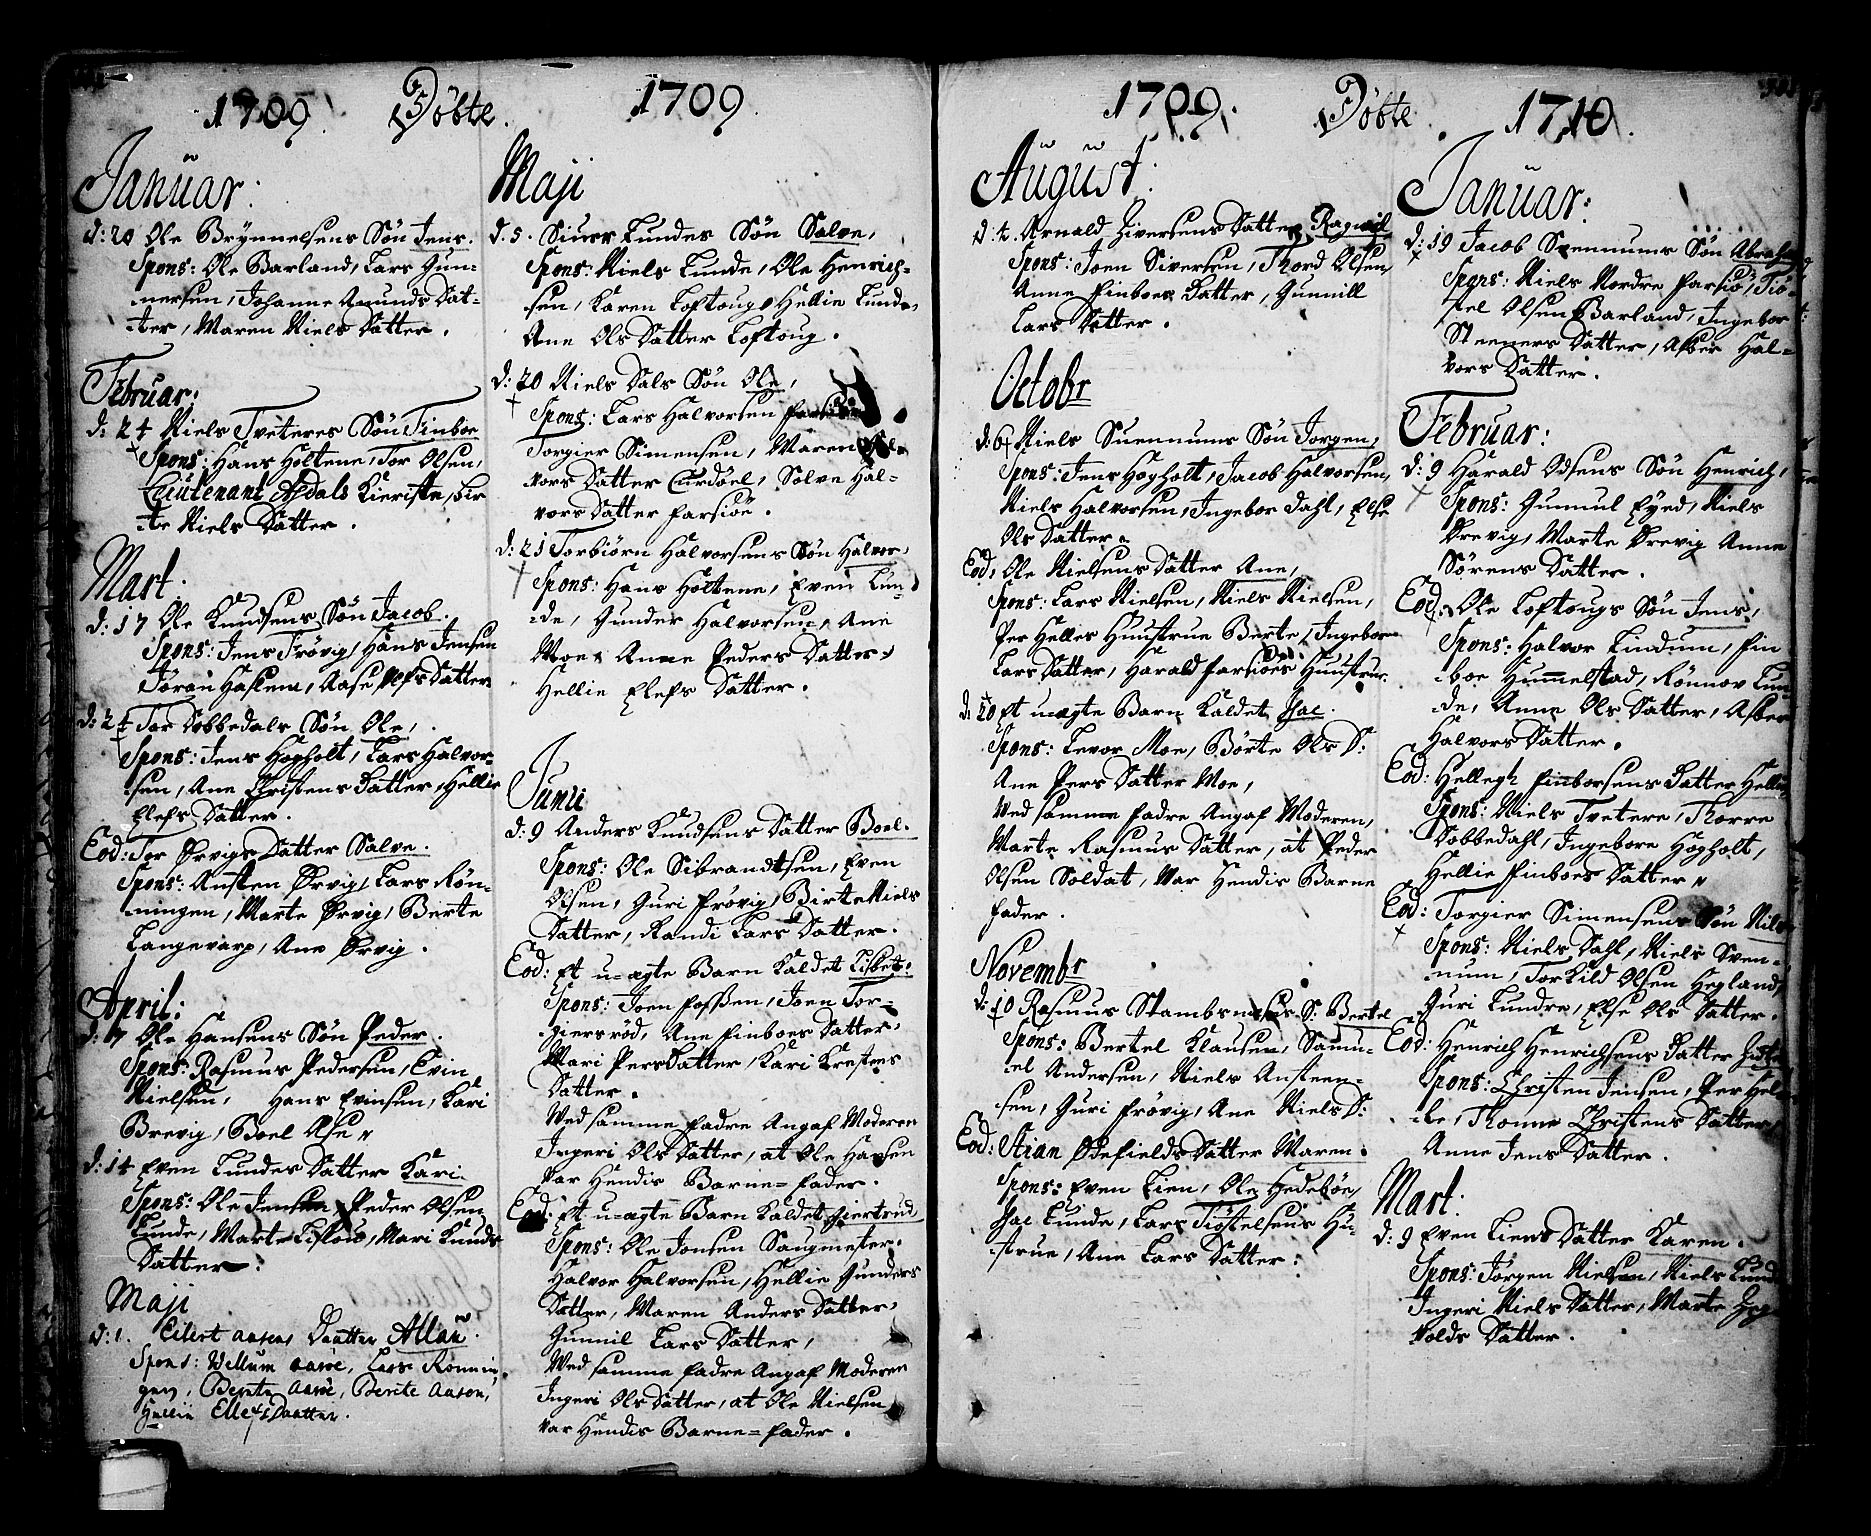 1709. Döbte. 1709
Januar:
d: 20 Ole Brynnelsens Sön Jens.
Spons: Ole Barland, Lars Gun-
nersen, Johanne Amunds Dat-
ter, Maren Niels Datter.
Februar:
d: 24 Niels Tveteres Sön Finboe
Spons: Hans Holtene, Tor Olsen,
Lieutenant Asdals Kieriste, Bir
te Niels Datter.
Mart.
d: 17 Ole Knudsens Sön Jacob.
Spons: Jens Frövig, Hans Jensen
Jöran Haslem, Aase Olefs Datter
d: 24 Tor Dobbedals Sön Ole,
Spons: Jens Hogholt, Lars Halvor-
sen, Ane Christens Datter, Hellie
Elefs Datter.
Eod: Tor Örvigs Datter Salve.
Spons: Austen Örvig, Lars Rön-
ningen, Marte Örvig, Berte
Langevarp, Ane Örvig.
April:
d: 7 Ole Hansens Sön Peder.
Spons: Rasmus Pedersen, Evin
Nielsen, Hans Evinsen, Kari
Brevig, Boel Ose
d: 14 Even Lundes Datter Kari.
Spons: Ole Jensen, Peder Olsen
Lunde, Marte, Mari Knuds
Datter.
Maji
d: 1. Eilert Datter
Spons: Villum, Lars Rönnin
gen, Berte, Berte
Hellie Ellefs Daatter.
Maji
d. 5. Siurr Lundes Sön Salve,
Spons: Niels Lunde, Ole Henrich-
sen, Karen Loftoug, Hellie Lunde,
Ane Ols Datter Loftoug.
d: 20 Niels Dals Sön Ole,
Spons: Lars Halvorsen
Torgier Simensen, Maren Hal-
vors Datter, Solve Hal-
vors Datter Farsiöe.
d: 21 Torbiörn Halvorsens Sön Halvor,
Spons: Hans Holtene, Even Lun-
de, Gunder Halvorsen, Ane
Moe, Anne Peders Datter,
Hellie Elefs Datter.
Junii
d: 9 Anders Knudsens Datter Boel.
Spons: Ole Sibrandtsen, Even
Olsen, Guri Frövig, Birte Niels
Datter, Randi Lars Datter.
Eod: Et u-agte Barn kaldet Lisbet.
Spons: Joen Fossen, Joen Tor-
giersröd, Ane Finboes Datter,
Mari Pers Datter, Kari Krestens
Datter.
Ved samme Fadre Angaf Moderen
Ingeri Ols Datter, at Ole Hansen
var Hendis Barne-Fader.
Eod: Et u-agte Barn kaldet Giertrud
Spons: Ole Jonsen Saugmester,
Halvor Halvorsen, Hellie Gunders
Datter, Maren Anders Datter,
Gunnil Lars Datter,
Ved samme Fadre Angaf Moderen
Ingeri Ols Datter, at Ole Nielsen
var Hendis Barne-Fader.
1709. Döbte. 1710.
August:
d. 4. Arnald Ziversens Datter Ragnil
Spons: Joen Siversen, Thord Olsen
Anne Finboes Datter, Gunnill
Lars Datter.
Octobr
d: 6 Niels Suennums Sön Jorgen,
Spons: Jens Hogholt, Jacob Halvorsen,
Niels Halvorsen, Ingebor Dahl, Else
Ols Datter.
Eod: Ole Nielsens Datter Ane,
Spons: Lars Nielsen, Niels Nielsen,
Per Helles Huustrue Berte, Ingebor
Lars Datter, Harald Farsiöes Huustrue
d: 20 Et u-agte Barn kaldet Isac.
Spons: Levor Moe, Börte Ols D:
Ane Pers Datter Moe,
Ved samme Fadre Angaf Moderen,
Marte Rasmus Datter, at Peder
Olsen Soldat, Var Hendis Barne
Fader.
Novembr
d: 10 Rasmus S. Bertel
Spons: Bertel Klausen, Samu-
el Andersen, Niels Austen-
sen, Guri Frövig, Ane Niels D:
Eod: Stian Ödefields Datter Maren.
Spons: Even Lien, Ole Hedeböe,
Isac Lunde, Lars Tiöstelsens Hu-
strue, Ane Lars Datter:
Januar:
d: 19 Jacob Svennums Sön Abraham
Spons: Niels Nordre Farsiö, Tiö-
stel Olsen Barland, Ingebor
Steners Datter, Asber Hal-
vors Datter.
Februar:
d: 9 Harald Odsens Sön Henrich,
Spons: Gunnul Eyed, Niels
Brevig, Marte Brevig Anne
Sörens Datter.
Eod: Ole Loftougs Sön Jens,
Spons: Halvor Lindum, Fin
boe Hummelstad, Rönnov Lun
de, Anne Ols Datter, Asber
Halvors Datter.
Eod: Hellegh Finborsens Datter Hellie
Spons: Niels Tvetere, Thorre
Dobbedahl, Ingebore Hogholt,
Hellie Finboes Datter
Eod: Torgier Simensens Sön Nils
Spons: Niels Dahl, Niels Sven-
num, Torkild Olsen Hegland,
Guri Lundre, Else Ols Datter.
Eod: Henrich Henrichsens Datter
Spons: Christen Jensen, Per Hel-
le, Thonne Christens Datter,
Anne Jens Datter.
Mart:
d: 9 Even Liens Datter Karen.
Spons: Jörgen Nielsen, Niels Lunde
Ingeri Niels Datter, Marte
volds Datter.